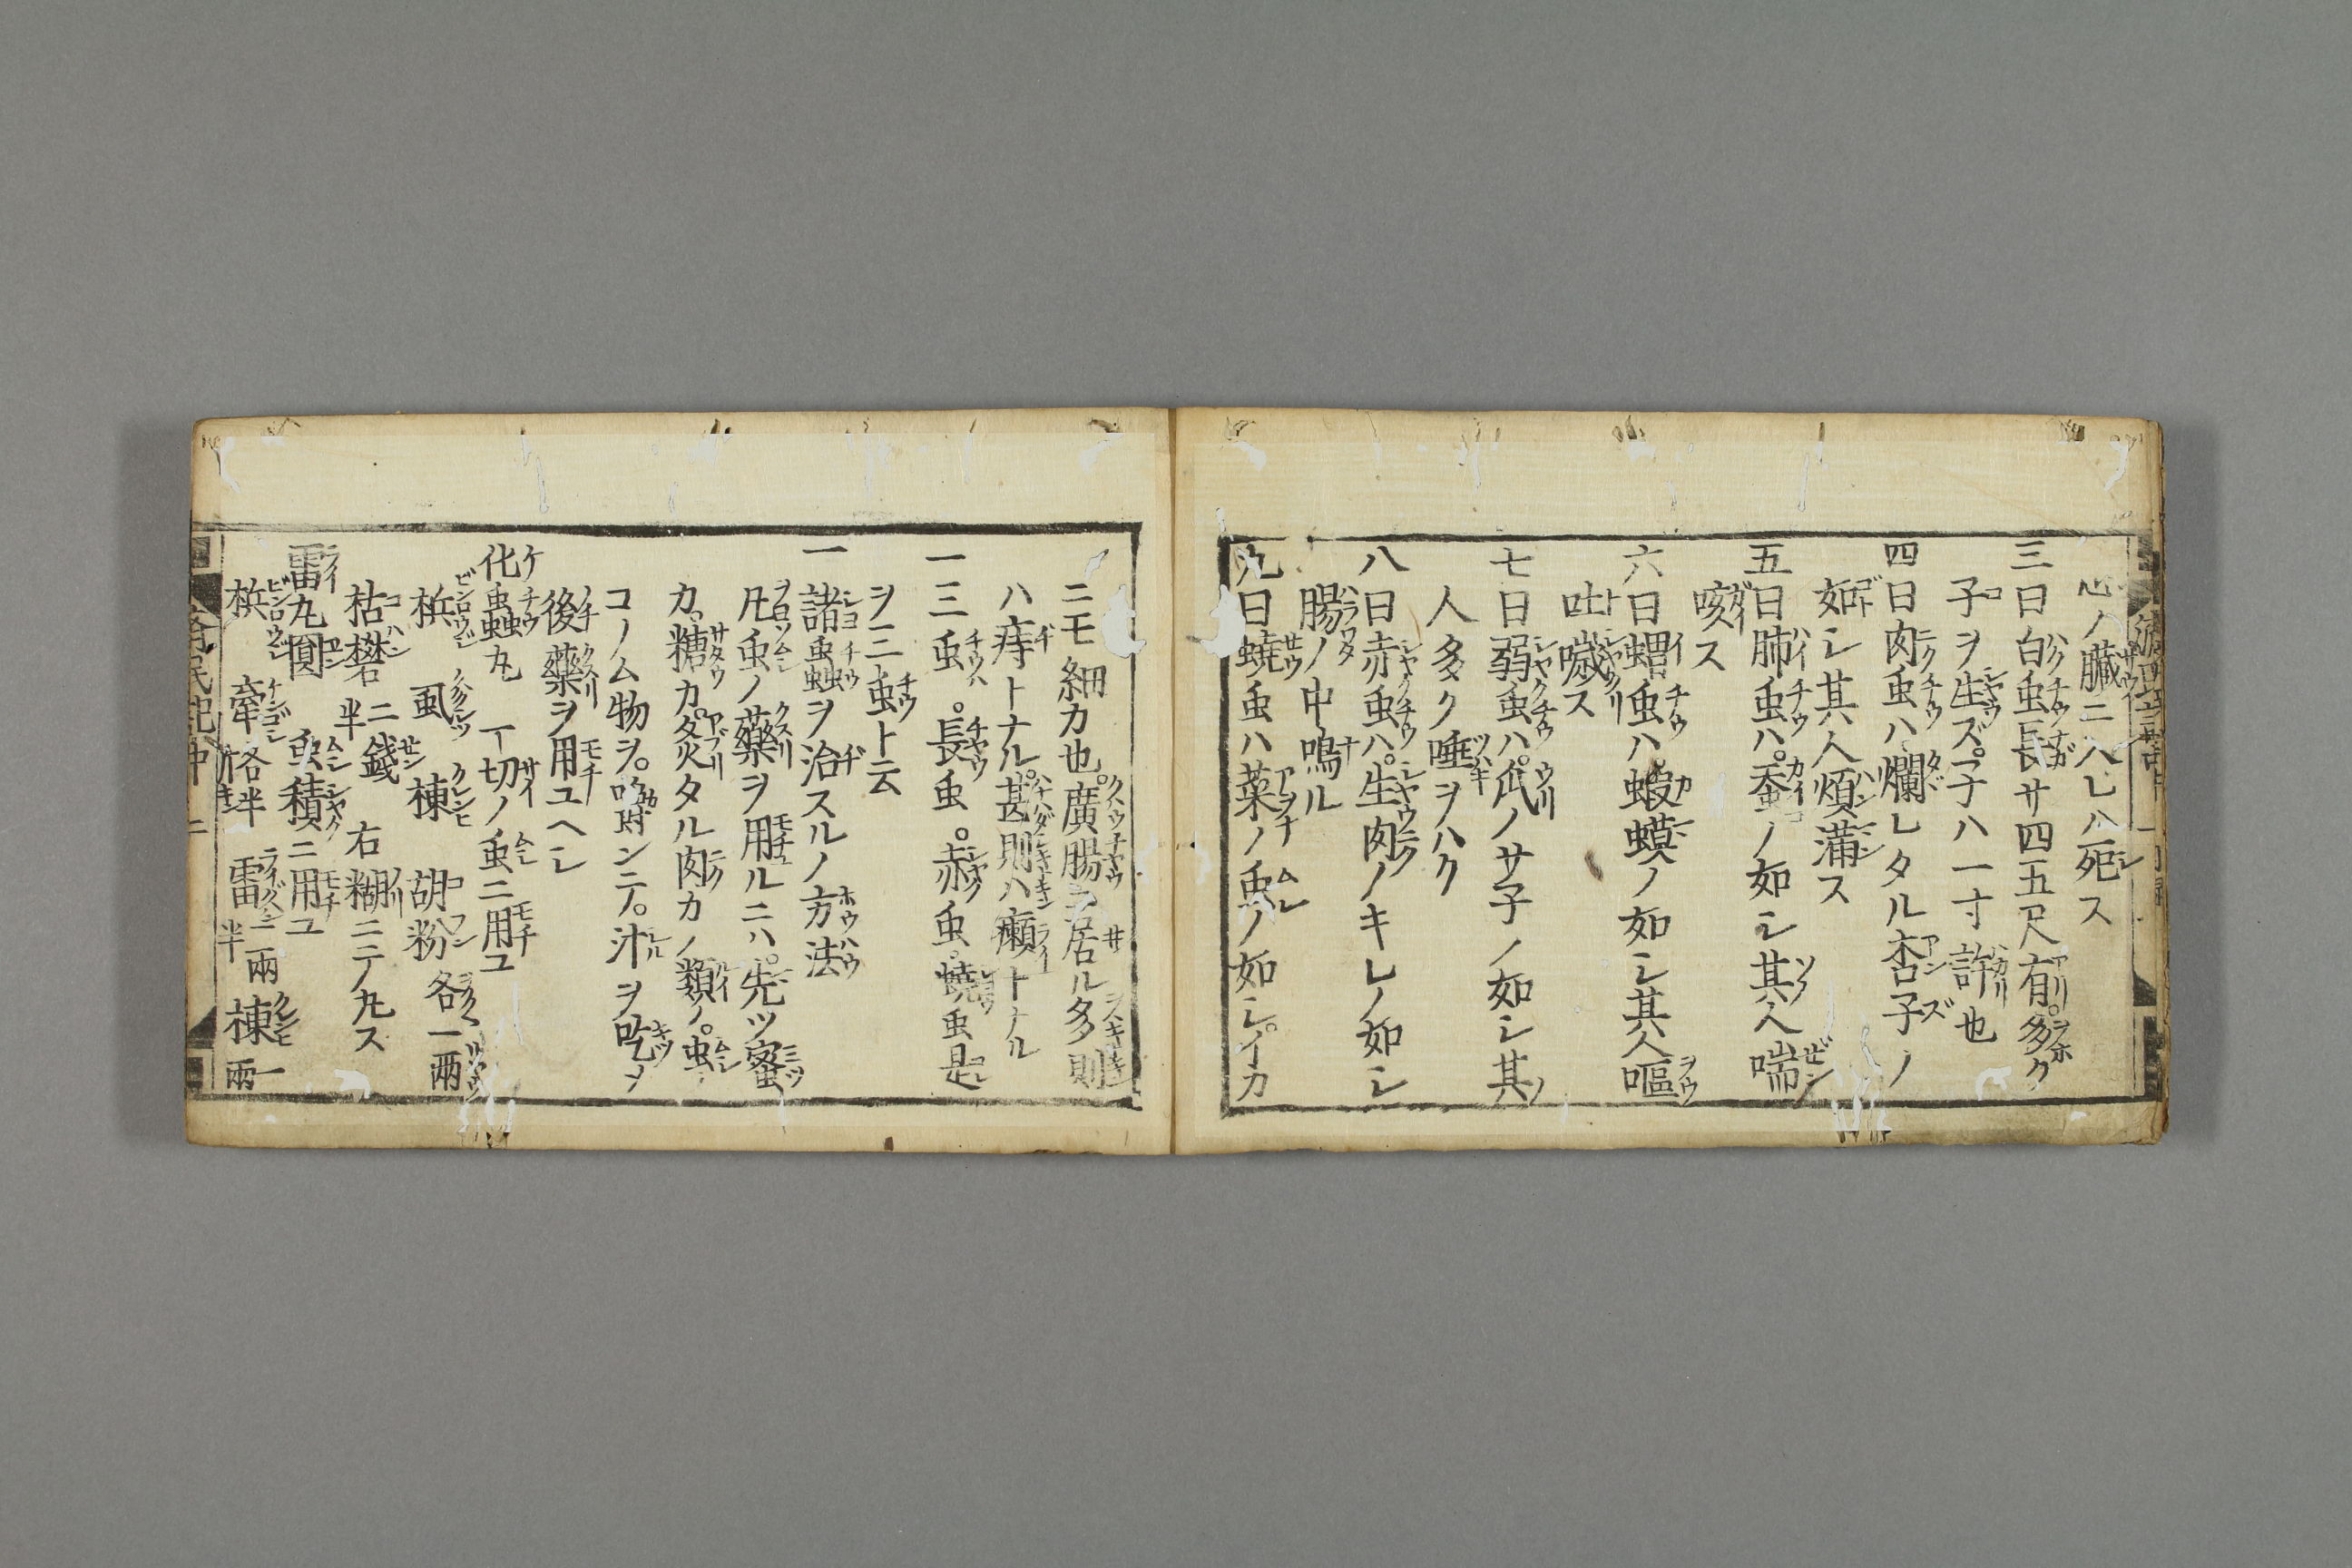 心ノ臓ニ入レハ死ス
三曰白虫長サ四五尺有。多ク
子ヲ生ズ。子ハ一寸許也
四曰肉虫ハ爛レタル杏子ノ
如シ其人煩満ス
五曰肺虫ハ。蚕ノ如シ其人喘
咳ス
六曰蝟虫ハ蝦蟆ノ如シ其人嘔
吐噦ス
七曰弱虫ハ。瓜ノサ子ノ如シ其
人多ク唾ヲハク
八曰赤虫ハ。生肉ノキレノ如シ
腸ノ中鳴ル
九曰蟯虫ハ菜ノ虫ノ如シ。イカ
ニモ細カ也。廣腸ニ居ル多則
ハ痔トナル。甚則ハ癩トナル
一三虫。長虫。赤虫。蟯虫是
ヲ三虫ト云
一諸虫蟲ヲ治スルノ方法
凡虫ノ藥ヲ用ルニハ。先ツ蜜
カ。糖カ。炙タル肉カノ類ノ。虫
コノム物ヲ。嚼ンテ。汁ヲ吃メ
後藥ヲ用ユヘシ
化虫蟲丸 一切ノ虫ニ用ユ
梹 虱 楝 胡粉各一兩
枯礬二錢半 右糊ニテ丸ス
雷丸圓 虫積ニ用ユ
梹 牽各半 雷二兩半 楝一兩